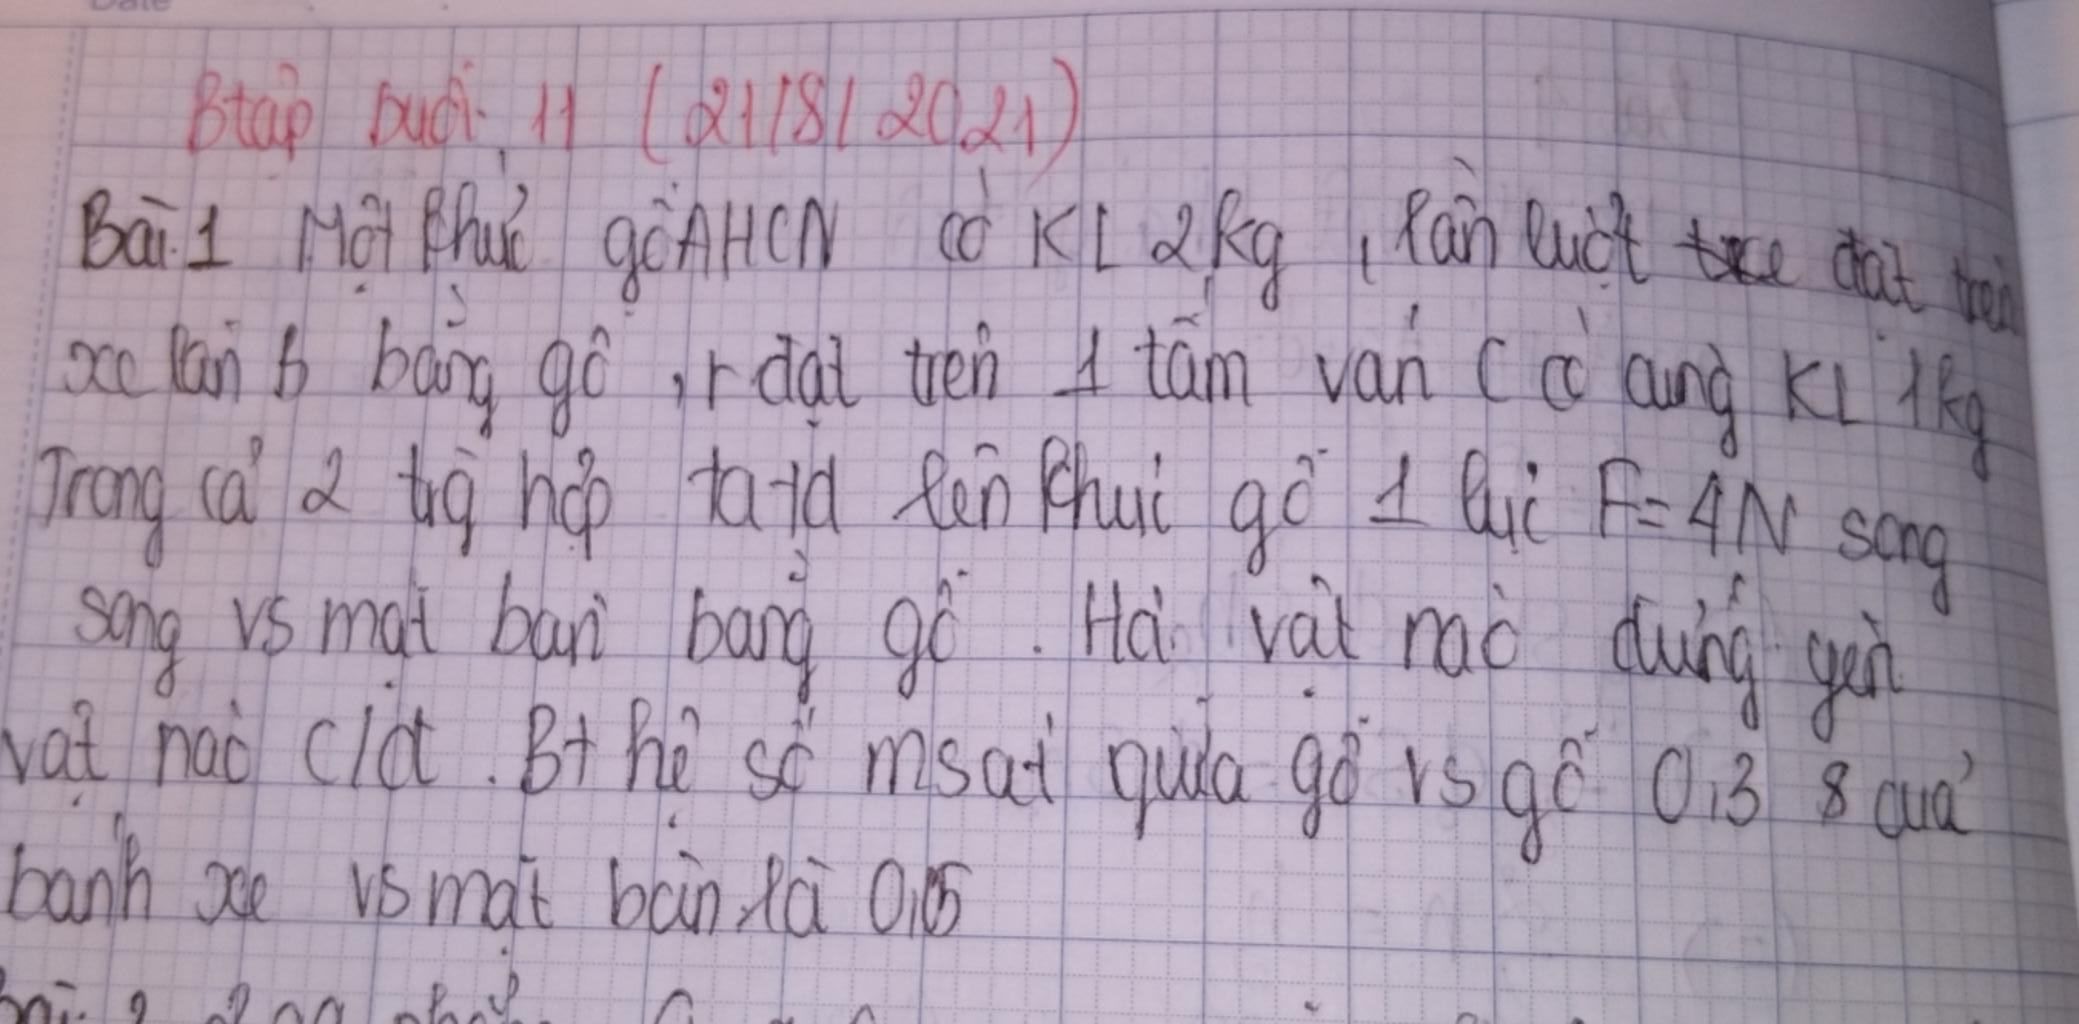 Date
Btập buổi 11 (21/8/2021)
Bài 1 Một khúc gỗ AHCN có KL 2kg, lần lượt đặt trên
xe lăn B bằng gỗ, r đặt trên 1 tấm ván C có cùng KL 1kg
Trong cả 2 trg hợp ta td lên khúc gỗ 1 lực F=4N song
song vs mặt bàn bằng gỗ. Hỏi vật nào đứng yên
vật nào c/đ. Bt hệ số msát giữa gỗ vs gỗ 0,3 & của
bánh xe vs mặt bàn là